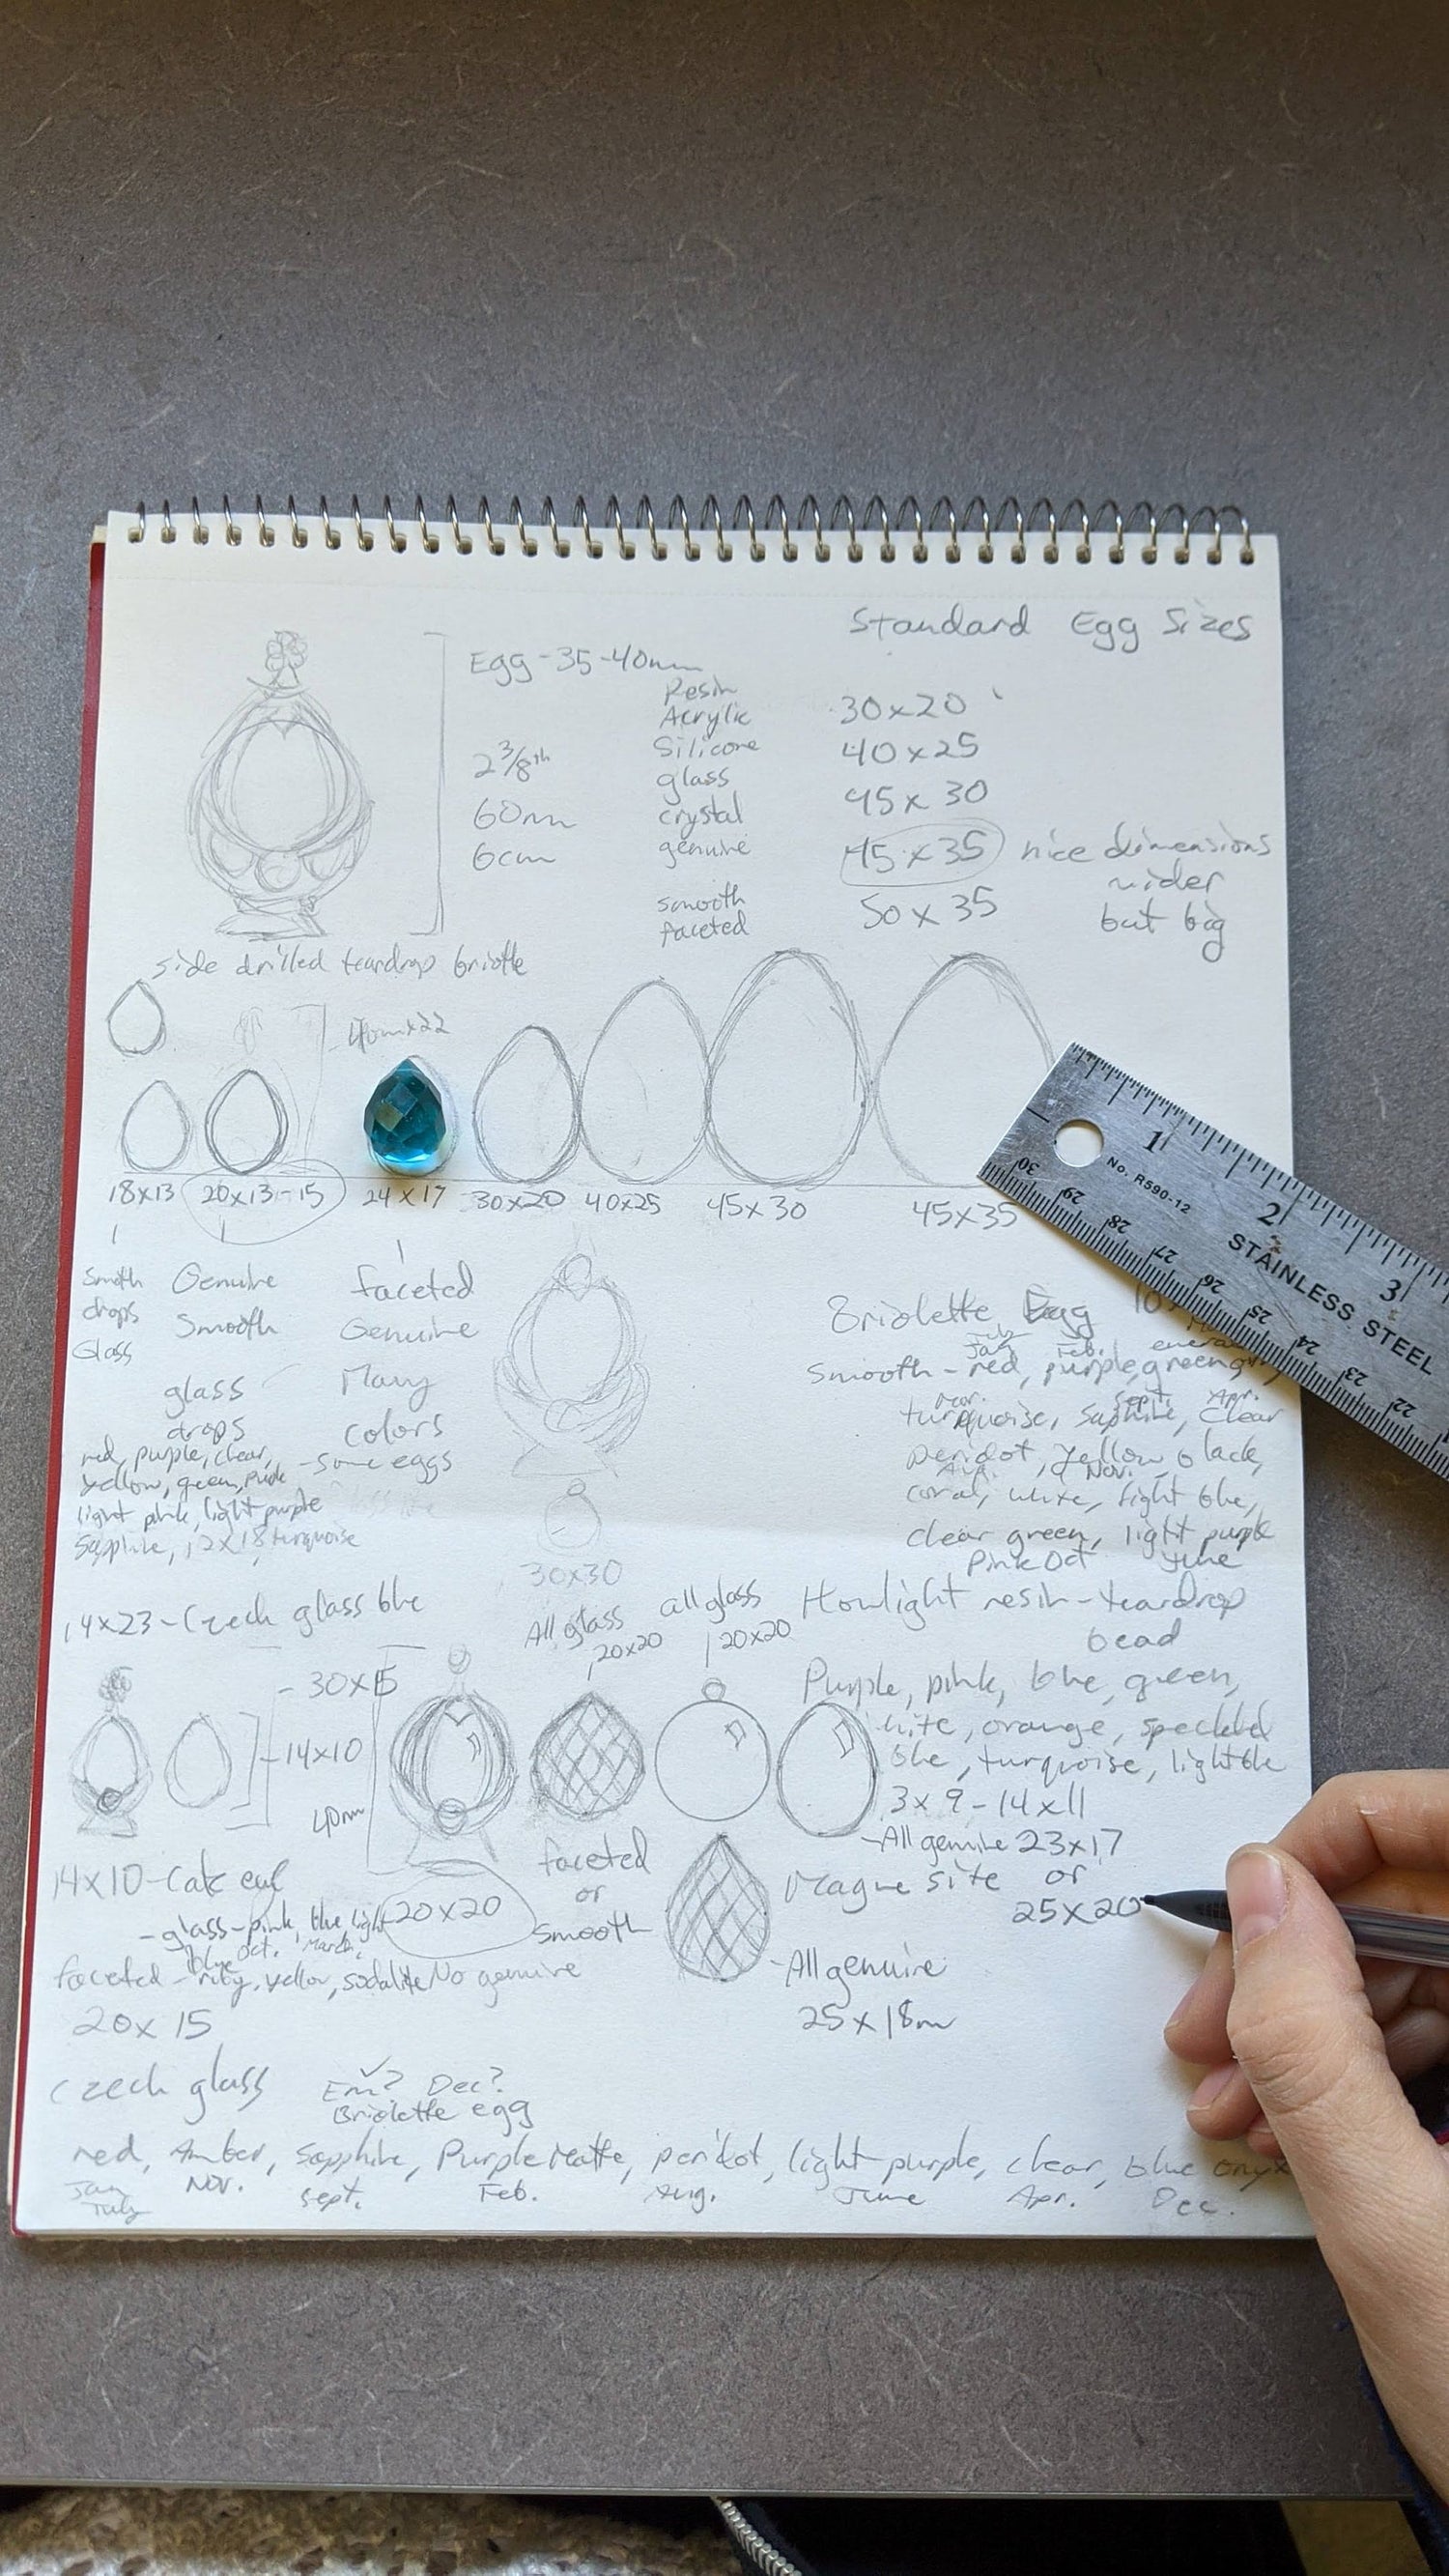 Standard Egg Sizes
Egg-35-40mm
Resin
Acrylic
Silicone
glass
crystal
genuine
smooth
faceted
2 3/8th
60mm
6cm
30x20
40x25
45x30
45x35 nice dimensions
wider
but big
50x35
side drilled teardrop
18x13 20x13-15 24x17 30x20 40x25 45x30 45x35
Smoth
drops
Glass
Genuine
Smooth
glass
drops
red, purple, clear,
yellow, green,
light pink, light purple
Sapphire, 12x18 turquoise
faceted
Genuine
Many
colors
-some eggs
30x30
Briolette Egg
July
Jan. Feb.
Smooth-red, purple, green
Mar. Sept. Apr.
turquoise, saphire, clear
peridot, yellow, black,
Aug. Nov.
coral, white, light blue,
clear green, light purple
Pink Oct June
1
2
3
No. R590-12
STAINLESS STEEL
30 29 28 27 26 25 24 23 22
14x23-Czech glass blue
All glass
20x20
all glass
20x20
Howlight resin-teardrop
bead
Purple, pink, blue, green,
orange, speckled
blue, turquoise, light blue
3x9-14x11
-All genuine 23x17
or
25x20
-30x15
-14x10
40mm
20x20
faceted
or
smooth
Magnesite
-All genuine
25x18m
14x10-
-glass-pink, blue, light
blue Oct. March,
faceted-ruby, yellow, sodalite No genuine
20x15
Czech glass
Em? Dec?
Briolette egg
red, Amber, Sapphire, Purple Matte, peridot, light purple, clear, blue onyx
Jan Nov. Sept. Feb. Aug. June Apr. Dec.
July